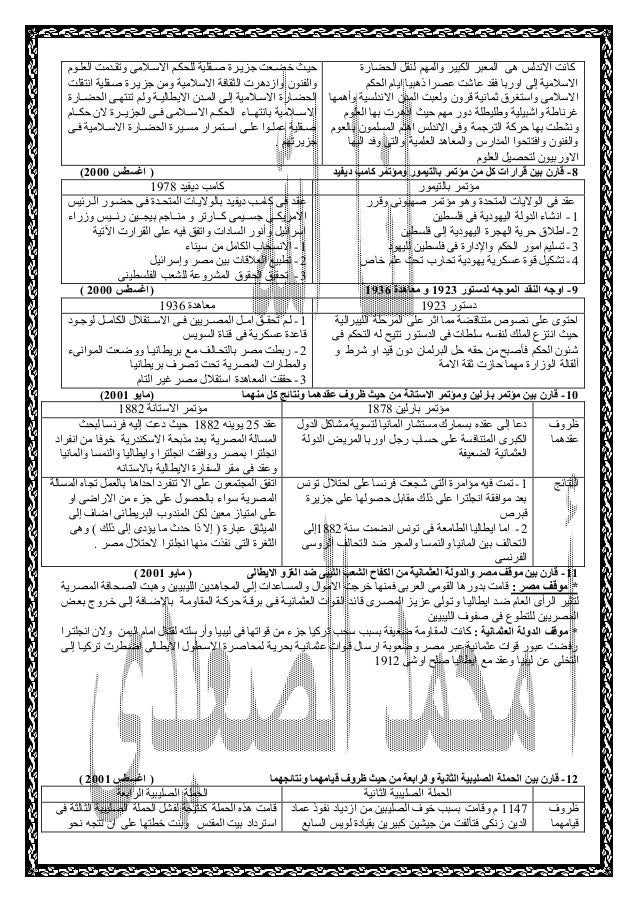 كانت الاندلس هى المعبر الكبير والمهم لنقل الحضارة
الاسلامية إلى اوربا فقد عاشت عصرا ذهبيا ايام الحكم
الاسلامى واستغرق ثمانية قرون ولعبت المدن الاندلسية وأهمها
غرناطة واشبيلية وطليطلة دور مهم حيث ازدهرت بها العلوم
ونشطت بها حركة الترجمة وفى الاندلس اهتم المسلمون بالعلوم
والفنون وافتتحوا المدارس والمعاهد العلمية والتى وفد اليها
الاوربيون لتحصيل العلوم
حيث خضعت جزيرة صقلية للحكم الاسلامى وتقدمت العلوم
والفنون وازدهرت الثقافة الاسلامية ومن جزيرة صقلية انتقلت
الحضارة الاسلامية إلى المدن الايطالية ولم تنتهى الحضارة
الاسلامية بانتهاء الحكم الاسلامى فى الجزيرة لان حكام
صقلية عملوا على استمرار مسيرة الحضارة الاسلامية فى
جزيرتهم .
8- قارن بين قرارات كل من مؤتمر بالتيمور ومؤتمر كامب ديفيد ( اغسطس 2000)
مؤتمر بالتيمور
كامب ديفيد 1978
عقد فى الولايات المتحدة وهو مؤتمر صهيونى وقرر
1- انشاء الدولة اليهودية فى فلسطين
2- اطلاق حرية الهجرة اليهودية إلى فلسطين
3- تسليم امور الحكم والإدارة فى فلسطين لليهود
4- تشكيل قوة عسكرية يهودية تحارب تحت علم خاص
عقد فى كامب ديفيد بالولايات المتحدة فى حضور الرئيس
الامريكى جسيمى كارتر و مناجم بيجين رئيس وزراء
إسرائيل وأنور السادات واتفق فيه على القرارت الآتية
1- الانسحاب الكامل من سيناء
2- تطبيع العلاقات بين مصر وإسرائيل
3- تحقيق الحقوق المشروعة للشعب الفلسطينى
9- اوجه النقد الموجه لدستور 1923 و معاهدة 1936 (اغسطس 2000 )
دستور 1923
معاهدة 1936
احتوى على نصوص متناقضة مما اثر على المرحلة الليبرالية
حيث انتزع الملك لنفسه سلطات فى الدستور تتيح له التحكم فى
شئون الحكم فأصبح من حقه حل البرلمان دون قيد او شرط و
أقالة الوزارة مهما حازت ثقة الامة
1- لم تحقق امل المصريين فى الاستقلال الكامل لوجود
قاعدة عسكرية فى قناة السويس
2- ربطت مصر بالتحالف مع بريطانيا ووضعت الموانىء
والمطارات المصرية تحت تصرف بريطانيا
3- حققت المعاهدة استقلال مصر غير التام
10- قارن بين مؤتمر بارلين ومؤتمر الاستانة من حيث ظروف عقدهما ونتائج كل منهما (مايو 2001)
مؤتمر بارلين 1878
مؤتمر الاستانة 1882
ظروف
عقدهما
دعا إلى عقده بسمارك مستشار المانيا لتسوية مشاكل الدول
الكبرى المتنافسة على حساب رجل اوربا المريض الدولة
العثمانية الضعيفة
عقد 25 يوينه 1882 حيث دعت إليه فرنسا لبحث
المسالة المصرية بعد مذبحة الاسكندرية خوفا من انفراد
انجلترا بمصر ووافقت انجلترا وايطاليا والنمسا والمانيا
وعقد فى مقر السفارة الايطالية بالاستانه
النتائج
1- تمت فيه مؤامرة التى شجعت فرنسا على احتلال تونس
بعد موافقة انجلترا على ذلك مقابل حصولها على جزيرة
قبرص
2- اما ايطاليا الطامعة فى تونس انضمت سنة 1882إلى
التحالف بين المانيا والنمسا والمجر ضد التحالف الروسى
الفرنسى
اتفق المجتمعون على الا تنفرد احداها بالعمل تجاه المسالة
المصرية سواء بالحصول على جزء من الاراضى او
على امتياز معين لكن المندوب البريطانى اضاف إلى
الميثاق عبارة ( إلا اذا حدث ما يؤدى إلى ذلك ) وهى
الثغرة التى نفذت منها انجلترا لاحتلال مصر .
11- قارن بين موقف مصر والدولة العثمانية من الكفاح الشعب الليبى ضد الغزو الايطالى ( مايو 2001 )
* موقف مصر : قامت بدورها القومى العربى فمنها خرجت الاموال والمساعدات إلى المجاهدين الليبيين وهبت الصحافة المصرية
لتثير الرأى العام ضد ايطاليا وتولى عزيز المصرى قائد القوات العثمانية فى برقة حركة المقاومة بالإضافة إلى خروج بعض
المصريين للتطوع فى صفوف الليبيين
* موقف الدولة العثمانية : كانت المقاومة ضعيفة بسبب سحب تركيا جزء من قواتها فى ليبيا وأرسلته لقتال امام اليمن ولان انجلترا
رفضت عبور قوات عثمانية عبر مصر وصعوبة ارسال قوات عثمانية بحرية لمحاصرة الاسطول الايطالى اضطرت تركيا إلى
التخلى عن ليبيا وعقد مع ايطاليا صلح اوشى 1912
محمد الصعيدى
12- قارن بين الحملة الصليبية الثانية والرابعة من حيث ظروف قيامهما ونتائجهما ( اغسطس 2001 )
الحملة الصليبية الثانية
الحملة الصليبية الرابعة
ظروف
قيامهما
1147 م وقامت بسبب خوف الصليبين من ازدياد نفوذ عماد
الدين زنكى فتألفت من جيشين كبيرين بقيادة لويس السابع
قامت هذه الحملة كنتيجة لفشل الحملة الصليبية الثالثة فى
استرداد بيت المقدس وبنت خطتها على أن تتجه نحو